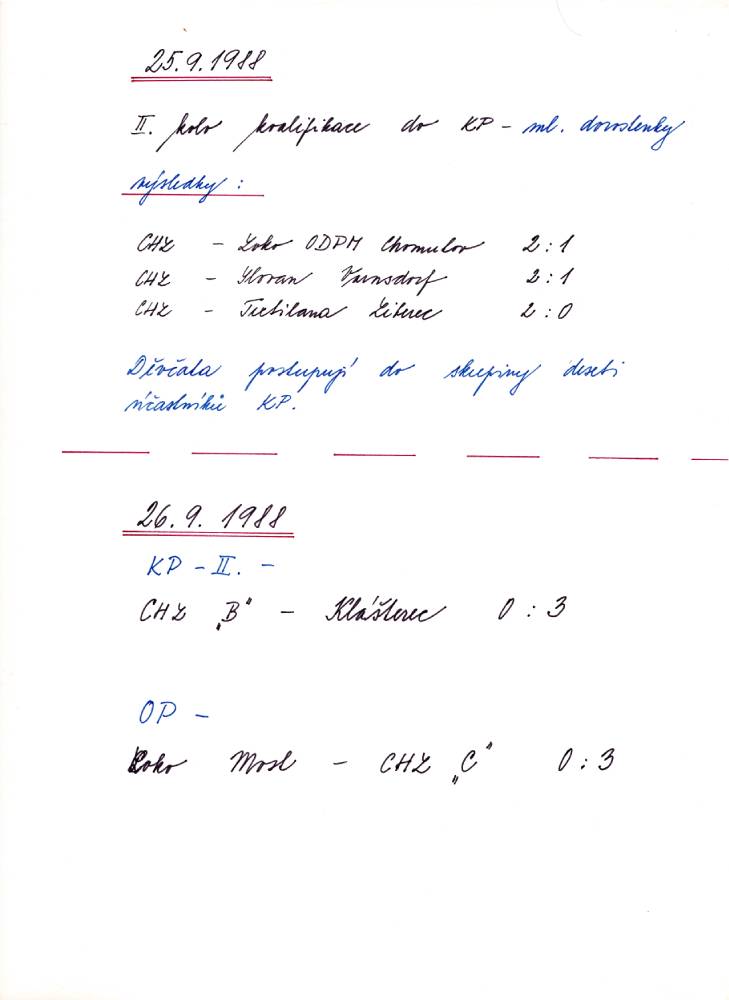 25.9.1988
II. kolo kvalifikace do KP - ml. dorostenky
výsledky :
CHZ - Loko ODPM Chomutov 2:1
CHZ - Slovan Varnsdorf 2:1
CHZ - Textilana Liberec 2:0
Děvčata postupují do skupiny deseti
účastníků KP.
26.9. 1988
KP - II. -
CHZ „B" - Klášterec 0:3
OP -
Loko Most - CHZ „C" 0:3